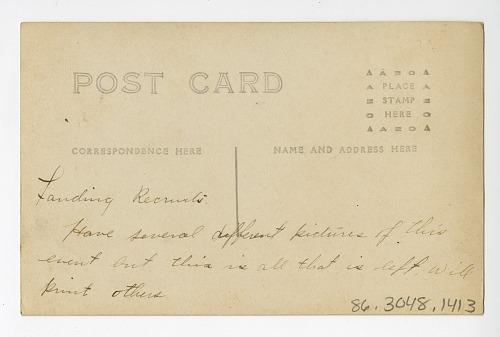 POST CARD
AZO
PLACE
STAMP
HERE
AZO
CORRESPONDENCE HERE
NAME AND ADDRESS HERE
Landing Recruits.
Have several different pictures of this
event but this is all that is left. Will
print others
86.3048.1413